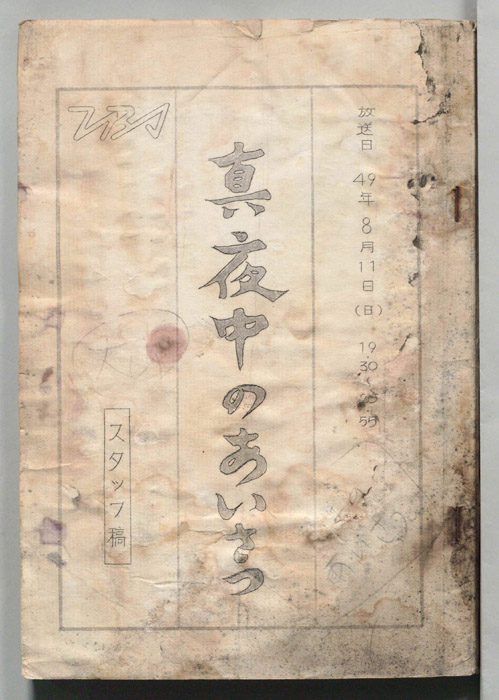 放送日 49年8月11日(日) 19
30
55
真夜中のあいさつ
スタッフ稿